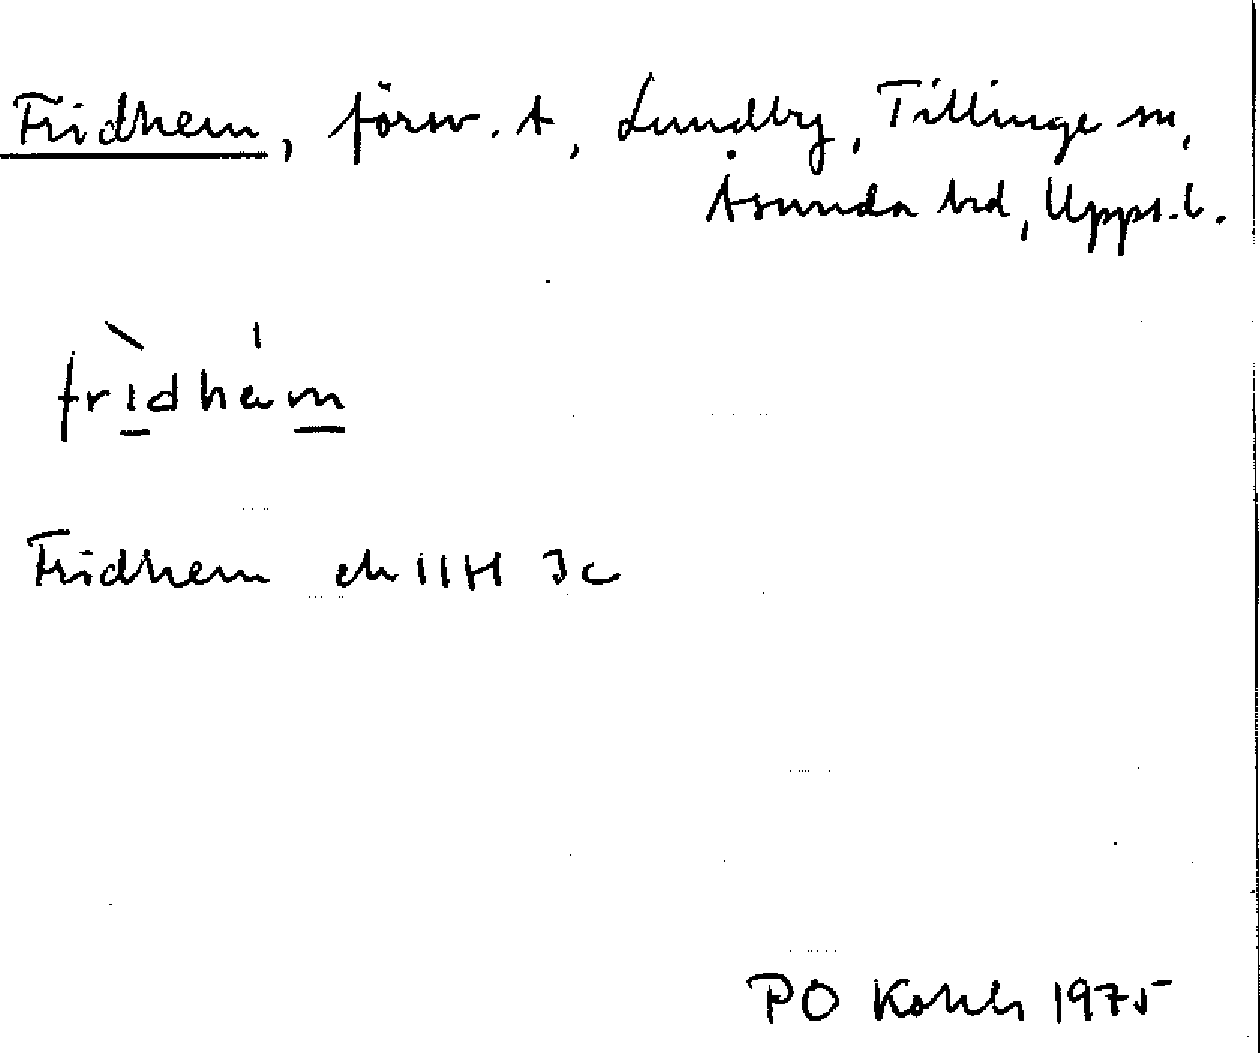 Fridhem, försv. t, Lundby, Tillinge sn,
Åsunda hd, Upps. l.
fridhem
Fridhem ek 11H 3c
PO 1975